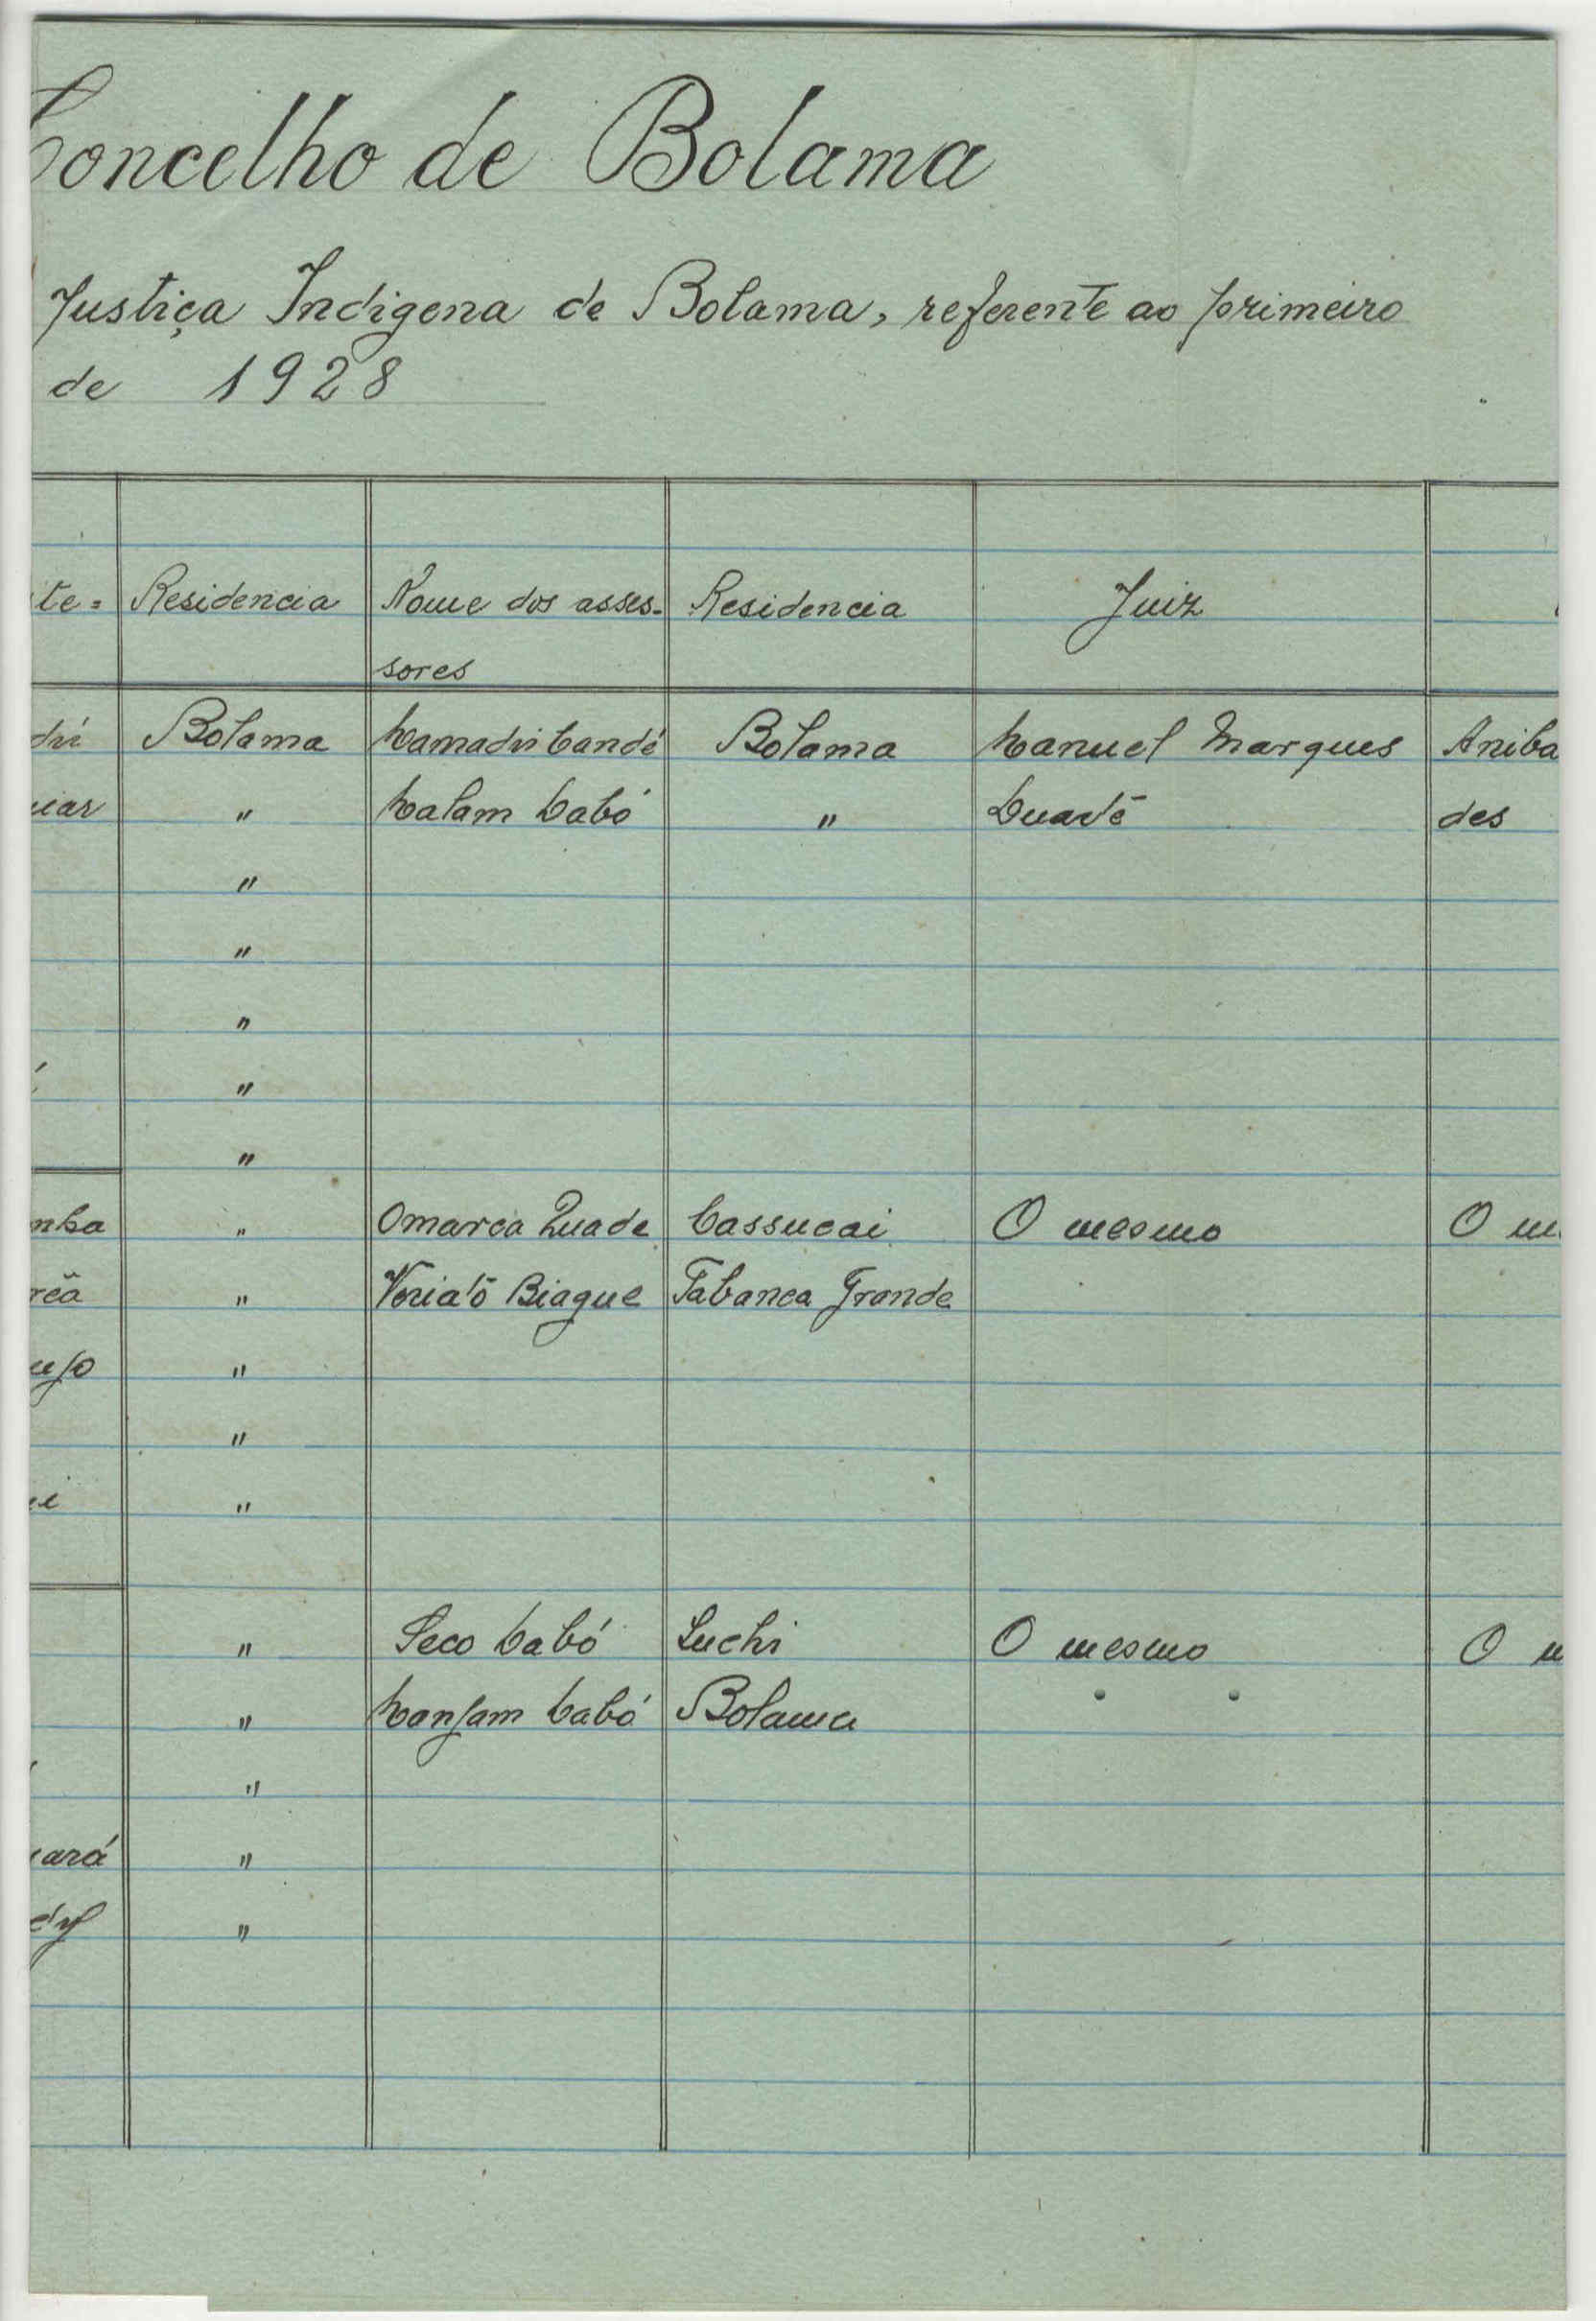 Concelho de Bolama
Justiça Indigena de Bolama, referente ao primeiro
de 1928
te= Residencia Nome dos asses- Residencia Juiz
sores
Bolama Mamadú Candé Bolama Manuel Marques Aniba
iar " Malam Cabó " Duarte des
"
"
"
"
"
" Omarca Quade Cassucai O mesmo O m
" Biague Tabanca Grande
"
"
"
" Seco Cabó Luchi O mesmo O m
" Mansam Cabó Bolama
"
ará "
"